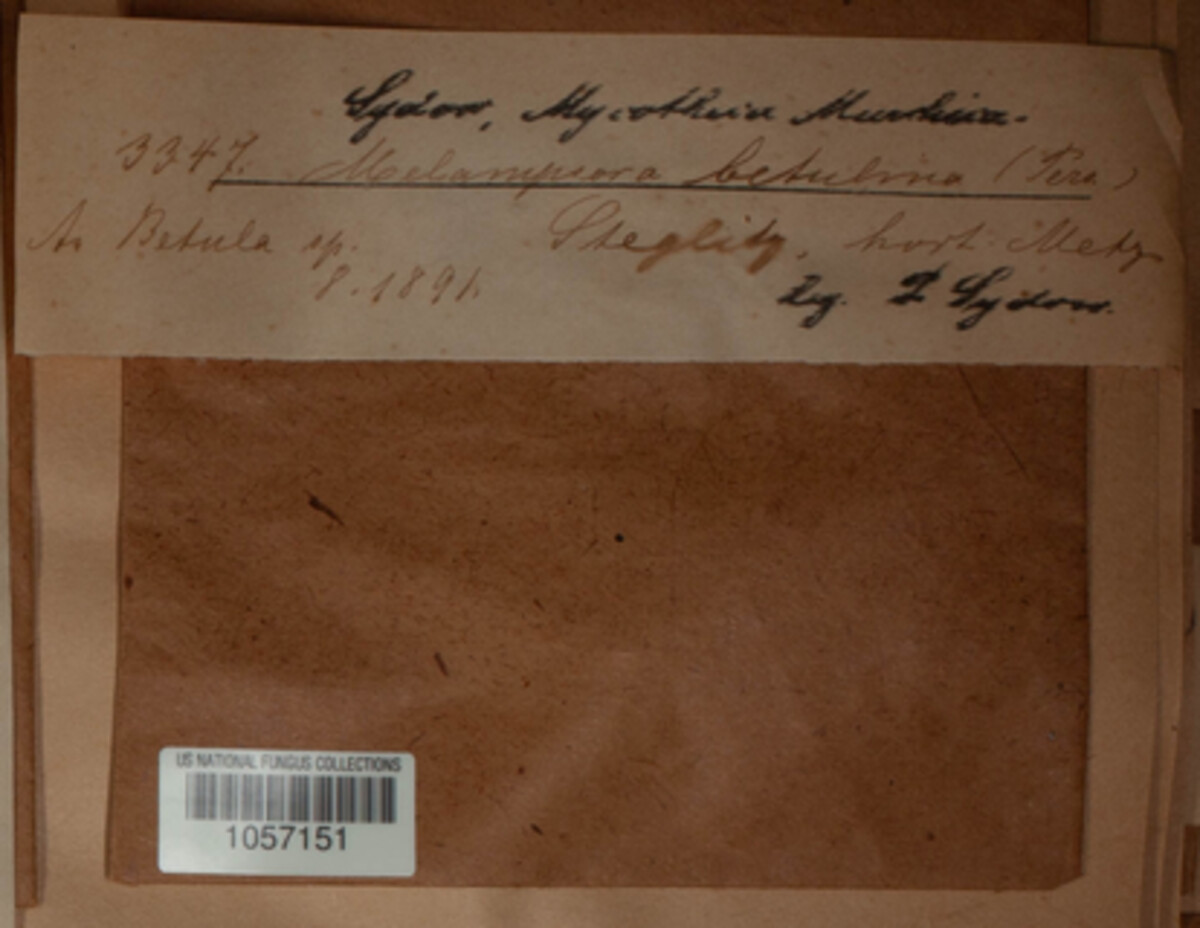 Sydow, Mycotheca Marchica.
3347. Melampsora betulina (Pers.)
An Betula sp. Steglitz, hort. Metz
8.1891. Leg. P Sydow.
US NATIONAL FUNGUS COLLECTIONS
1057151